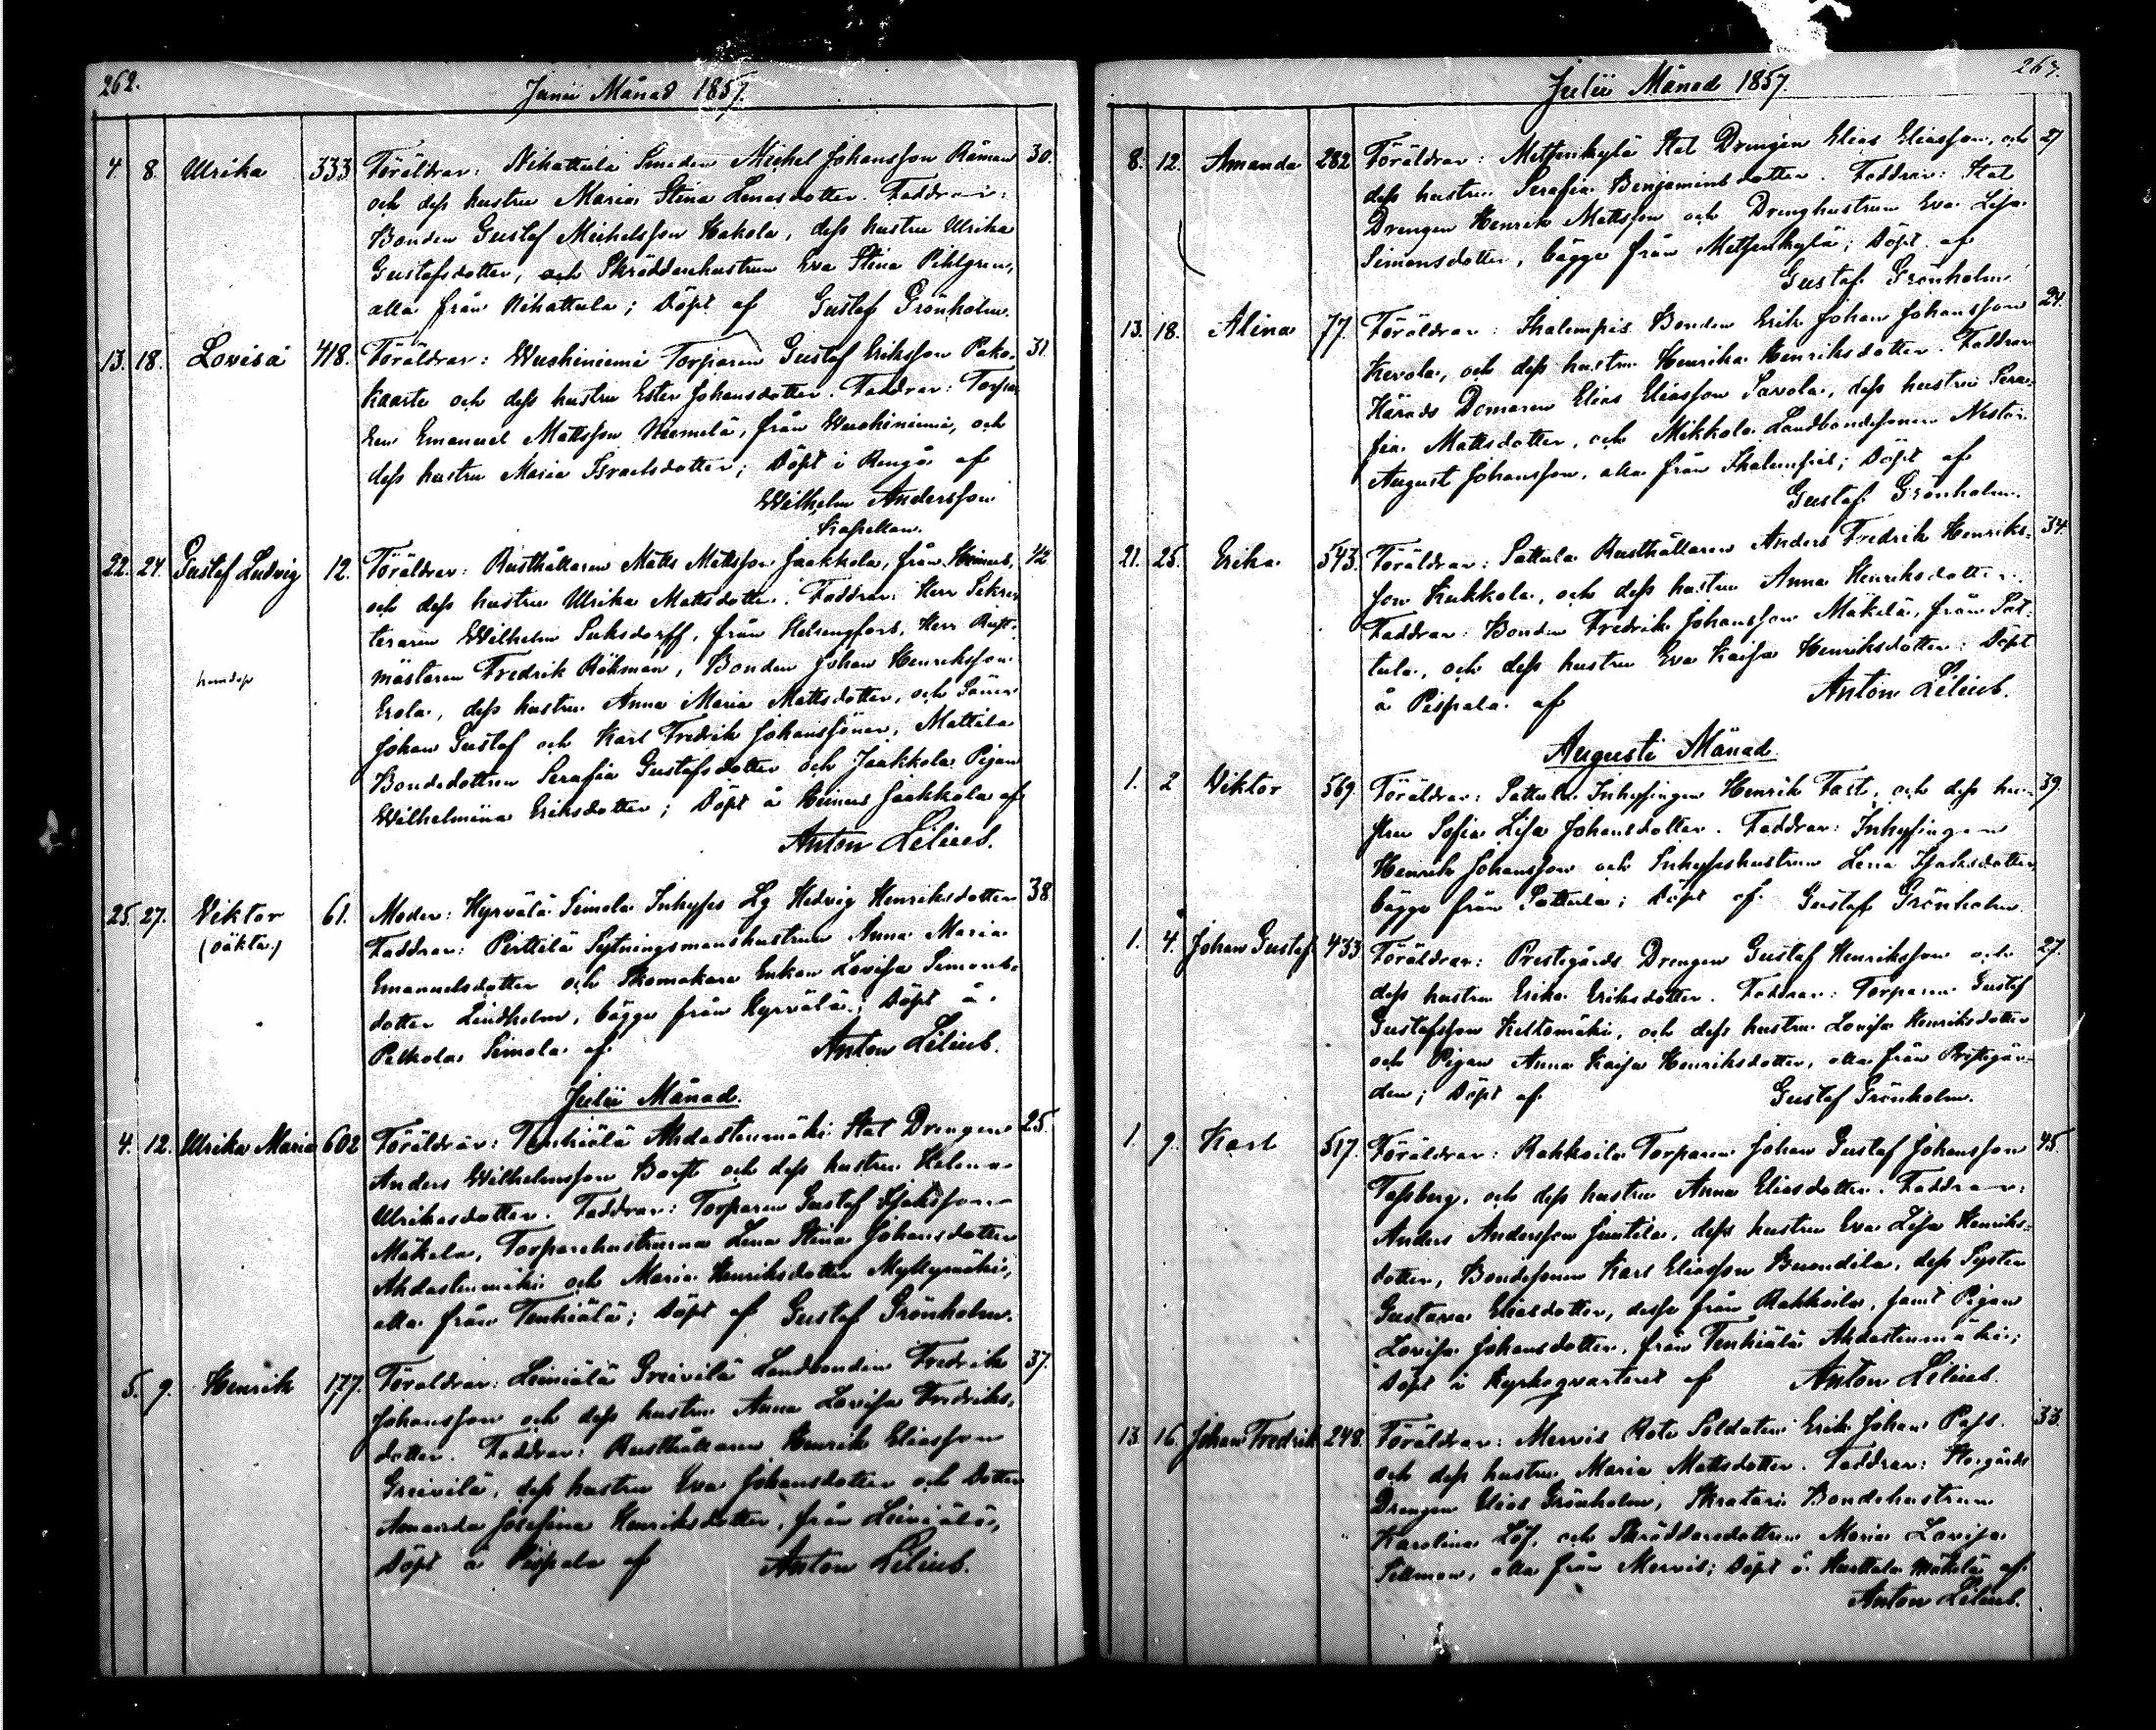 262.
Junii Månad 1857.
4. 8. Ulrika 333. Föräldrar: Nihattula Smeden Michel Johansson Råman 30.
och dess hustru Maria Stina Lenasdotter. Faddrar:
Bonden Gustaf Michelsson Hakola, dess hustru Ulrika
Gustafsdotter, och Skräddarehustrun Eva Stina Pihlgren,
alla från Nihattula; Döpt af Gustaf Grönholm.
13. 18. Lovisa 418. Föräldrar: Wuohiniemi Torparen Gustaf Eriksson Pako- 31.
kaarte och dess hustru Ester Johansdotter. Faddrar: Torpa-
ren Emanuel Mattsson Niemelä, från Wuohiniemi, och
dess hustru Maria Israelsdotter; Döpt i Rengo af
Wilhelm Andersson
Kapellan.
22. 24. Gustaf Ludvig 12. Föräldrar: Rusthållaren Matts Mattsson Jaakkola, från Heinus, 42
och dess hustru Ulrika Mattsdotter. Faddrar: Herr Sekre-
teraren Wilhelm Suksdorff, från Helsingfors, Herr Rust-
mästaren Fredrik Råhman, Bonden Johan Henriksson
Erola, dess hustru Anna Maria Mattsdotter, och Söner
Johan Gustaf och Karl Fredrik Johanssöner, Mattila
Bondedottren Serafia Gustafsdotter och Jaakkola Pigan
Wilhelmina Eriksdotter; Döpt å Heinus Jaakkola af
Anton Lilius.
25. 27. Viktor 61. Moder: Hyrvälä Simola Inhyses Lg Hedvig Henriksdotter 38
(oäkta) Faddrar: Perttilä Sytningsmanshustrun Anna Maria
Emanuelsdotter och Skomakare Enkan Lovisa Simons-
dotter Lindholm, bägge från Hyrvälä; Döpt å
Pelkola Simola af Anton Lilius.
Julii Månad.
4. 12. Ulrika Maria 602 Föräldrar: Tenhiälä Ahdastenmäki Stat Drengen 25.
Anders Wilhelmsson Barft och dess hustru Helena
Ulrikasdotter. Faddrar: Torparen Gustaf Isaksson
Mäkelä, Torparehustrurna Lena Stina Johansdotter
Ahdastenmäki och Maria Henriksdotter Myllymäki,
alla från Tenhiälä; Döpt af Gustaf Grönholm.
5. 9. Henrik 177. Föräldrar: Leiniälä Greivilä Landbonden Fredrik 37.
Johansson och dess hustru Anna Lovisa Fredriks-
dotter. Faddrar: Rusthållaren Henrik Eliasson
Greivilä, dess hustru Eva Johansdotter och Dotter
Amanda Josefina Henriksdotter, från Leiniälä;
Döpt å Pispala af Anton Lilius.
263.
Julii Månad 1857.
8. 12. Amanda 282 Föräldrar: Metsenkylä Stat Drengen Elias Eliasson, och 27
dess hustru Serafia Benjaminsdotter. Faddrar: Stat
Drengen Henrik Mattsson och Drenghustrun Eva Lisa
Simonsdotter, bägge från Metsenkylä; Döpt af
Gustaf Grönholm.
13. 18. Alina 77. Föräldrar: Ihalempis Bonden Erik Johan Johansson 24.
Kerola, och dess hustru Henrika Henriksdotter. Faddrar
Härads Domaren Elias Eliasson Savola, dess hustru Sera-
fia Mattsdotter, och Mikkola Landbondesonen Nestor
August Johansson, alla från Ihalempis; Döpt af
Gustaf Grönholm.
21. 25. Erika 543. Föräldrar: Sattula Rusthållaren Anders Fredrik Henriks- 34.
son Kukkola, och dess hustru Anna Henriksdotter.
Faddrar: Bonden Fredrik Johansson Mäkilä, från Sat-
tula, och dess hustru Eva Kaisa Henriksdotter: Döpt
å Pispala af Anton Lilius.
Augusti Månad.
1. 2 Viktor 569. Föräldrar: Sattula Inhysingen Henrik Fast, och dess hu- 39.
stru Sofia Lisa Johansdotter. Faddrar: Inhysingen
Henrik Johansson och Inhyseshustrun Lena Isaksdotter,
bägge från Sattula; Döpt af Gustaf Grönholm.
1. 4. Johan Gustaf 433 Föräldrar: Prestgårds Drengen Gustaf Henriksson och 27.
dess hustru Erika Eriksdotter. Faddrar: Torparen Gustaf
Gustafsson Keltomäki, och dess hustru Lovisa Henriksdotter
och Pigan Anna Kaisa Henriksdotter, alla från Prestgår-
den; Döpt af Gustaf Grönholm.
1. 9. Karl 517. Föräldrar: Rahkoila Torparen Johan Gustaf Johansson 45.
Tassberg, och dess hustru Anna Eliasdotter. Faddrar:
Anders Andersson Juntila, dess hustru Eva Lisa Henriks-
dotter, Bondesonen Karl Eliasson Buondila, dess Syster
Gustava Eliasdotter, desse från Rahkoila, samt Pigan
Lovisa Johansdotter, från Tenhiälä Ahdastenmäki;
Döpt i Kyrkoqvarteret af Anton Lilius.
13. 16. Johan Fredrik 248. Föräldrar: Mervis Rote Soldaten Erik Johan Pass. 33.
och dess hustru Maria Mattsdotter. Faddrar: Storgårds
Drengen Elias Grönholm, Skratari Bondehustrun
Karolina Löf, och Skräddaredottren Maria Lovisa
Sillman, alla från Mervis; Döpt å Hurttala Mäkilä af
Anton Lilius.